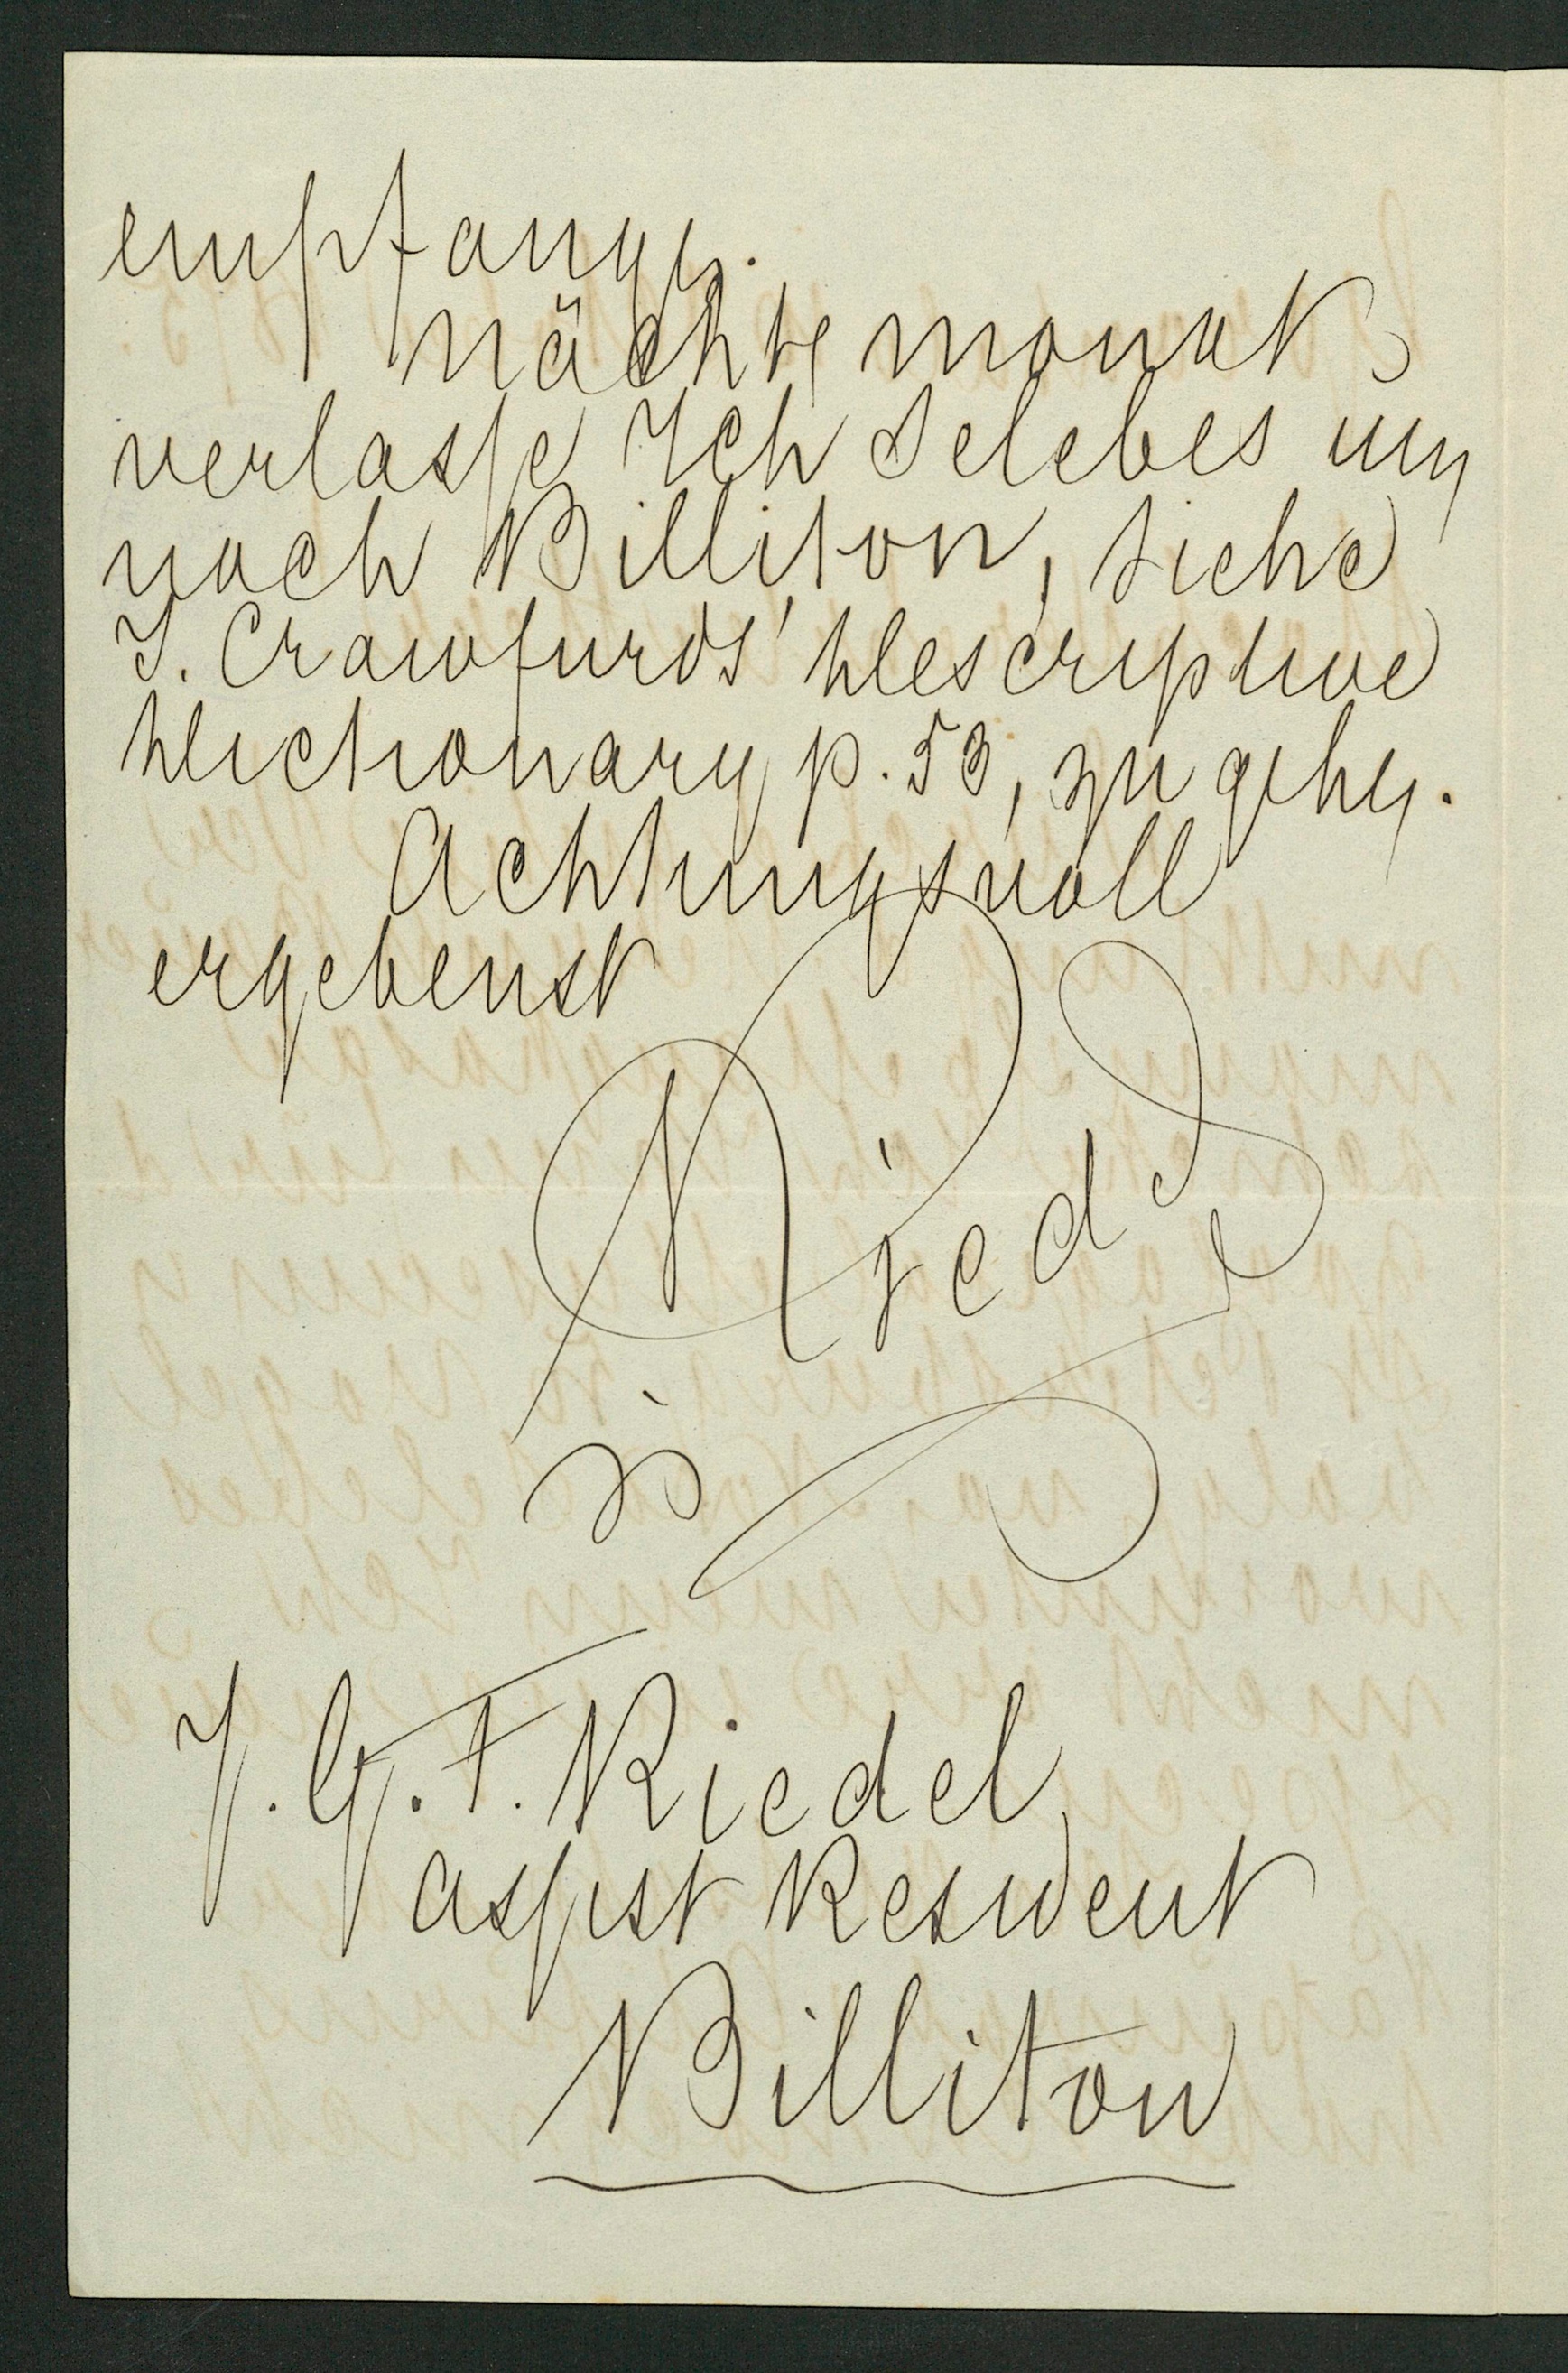 empfangen.
Nächte monat
verlasse Ich Selebes um
nach Billiton, siehe
J. Crawfurds' descriptive
dictionary p. 53, zu gehen.
Achtungsvoll
ergebenst
Riedel
J. G. F. Riedel
assist Resident
Billiton